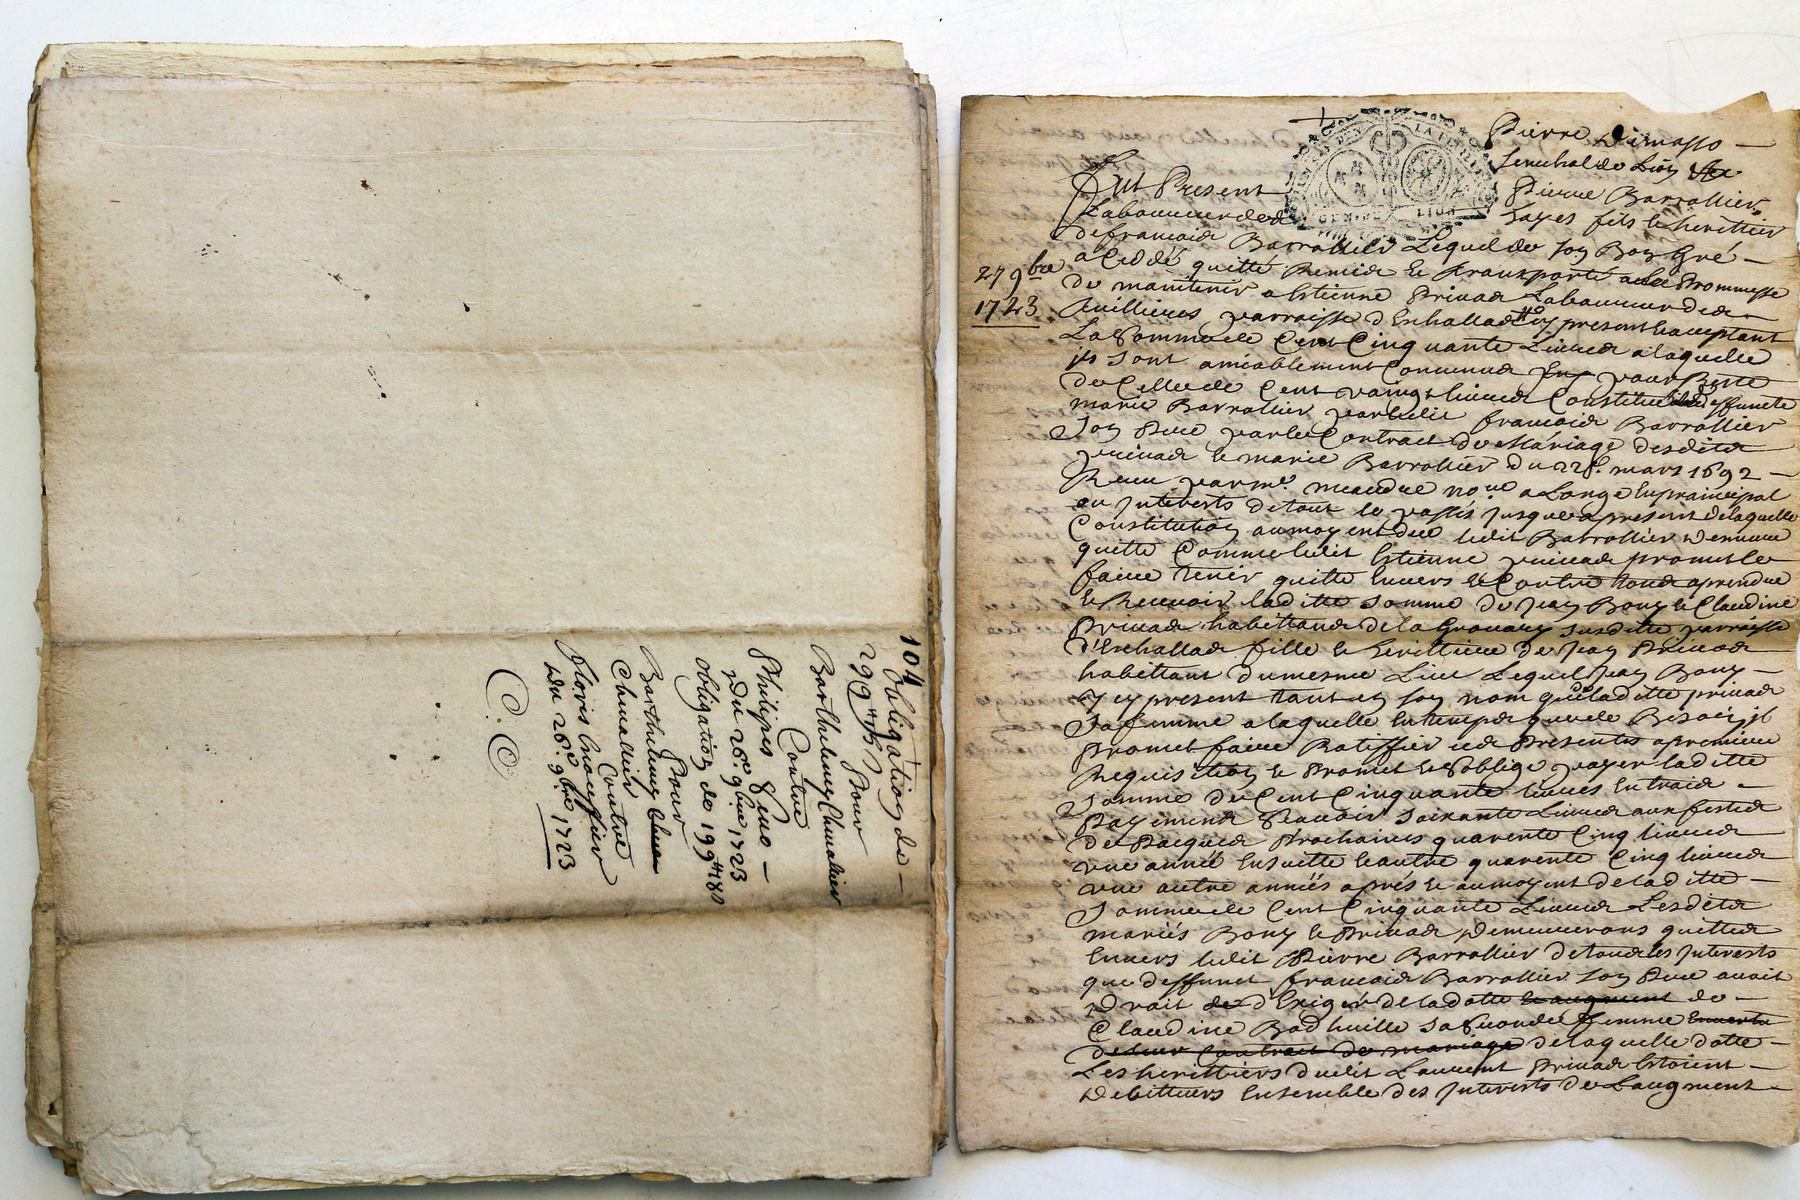 104
Obligation de
299# 5s Pour
Barthelemy Chevallier
Contre
Philipes
du 26e 9bre 1723
Obligation de 199# 18s
Pour
Barthelemy
Chevallier
Contre
Floris
du 26e 9bre 1723
C. C.
Pierre Dumasso
Senechal de Lion
LA
GENER LION
27 9bre
1723
Fut Present Pierre Barrollier
Laboureur de hayes fils et herittier
de francois Barrollier Lequel de son Bon Gré
a Ceddé quitté Remis et transporté avec Promesse
de maintenir a Estienne Privas Laboureur des
parroisse d'Enchallas icy present et acceptant
La Somme de Cent Cinquante Livres a laquelle
ils sont amiablement Convenus pour Reste
de Celle de Cent vaingt livres Constituée a deffuncte
marie Barrollier par ledit francois Barrollier
son Pere par le Contract de Mariage desdits
privas et marie Barrollier du 22e mars 1692
Receu par me nore a Longe En principal
ou Interests de tout le passés jusques a present de laquelle
Constitution au moyent dee ledit Barrollier demeure
quitte Comme ledit Estienne privas promet le
faire tenir quitte Envers et Contre tous a prendre
et Recevoir laditte somme de Jean Bony et Claudine
Privas habittans de la susditte parroisse
d'Enchallas fille et herittiere de Jean Privas
habittant du mesme Lieu Lequel Jean Bony
icy present tant en son nom que de laditte privas
sa femme a laquelle En temps que de Besoin il
promet faire Ratiffier ces Presentes a premiere
Requisition et Promet et s'oblige payer laditte
Somme de Cent Cinquante livres En trois
Payements scavoir soixante Livres aux festes
de Pacques Prochaines quarente Cinq livres
une année Ensuitte et autre quarente Cinq livres
une autre années aprés et au moyent de laditte
Somme de Cent Cinquante Livres Lesdits
mariés Bony et Privas demeurerons quittes
Envers ledit Pierre Barrollier de tous les Interests
que deffunct francois Barrollier son Pere avoit
Droit d'Exiger de la dotte et augment de
Claudine Badhuille sa seconde femme
de leur Contract de mariage de laquelle dotte
Les herittiers dudit Laurent Privas Estoient
Debitteurs Ensemble des Interests de Laugment